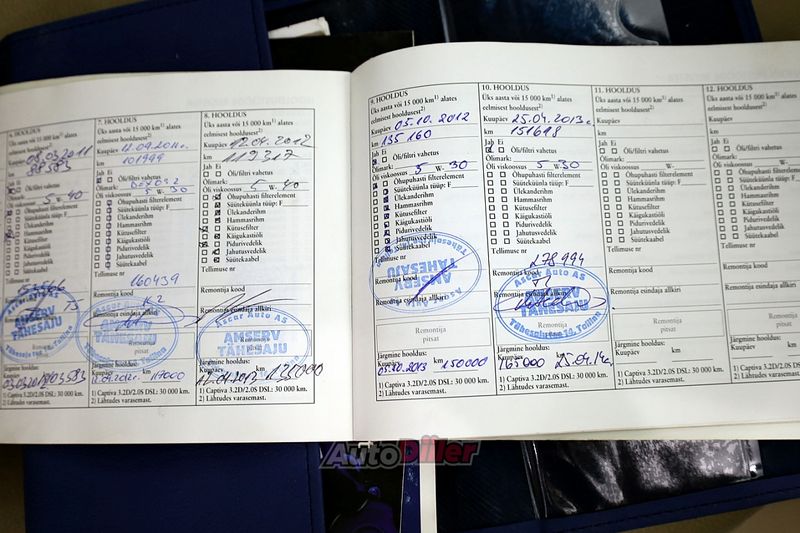 6. HOOLDUS
Üks aasta või 15 000 km¹⁾ alates
eelmisest hooldusest²⁾
Kuupäev 08.03.2011
km
Jah Ei
Õli/filtri vahetus
Õlimark:
Õli viskoossus 5 W- 40
Õhupuhasti filterelement
Süüteküünla tüüp: F
Ülekanderihm
Hammasrihm
Kütusefilter
Käigukastiõli
Pidurivedelik
Jahutusvedelik
Süütekaabel
Tellimuse nr
Remontija kood
Remontija esindaja allkiri
AMSERV
TÄHESAJU
Järgmine hooldus:
Kuupäev km
1) Captiva 3.2D/2.0S DSL: 30 000 km.
2) Lähtudes varasemast.
7. HOOLDUS
Üks aasta või 15 000 km¹⁾ alates
eelmisest hooldusest²⁾
Kuupäev
km 101999
Jah Ei
Õli/filtri vahetus
Õlimark:
Õli viskoossus 5 W- 30
Õhupuhasti filterelement
Süüteküünla tüüp: F
Ülekanderihm
Hammasrihm
Kütusefilter
Käigukastiõli
Pidurivedelik
Jahutusvedelik
Süütekaabel
Tellimuse nr
160439
Remontija kood
Remontija esindaja allkiri
AMSERV
TÄHESAJU
Järgmine hooldus:
Kuupäev km
117000
1) Captiva 3.2D/2.0S DSL: 30 000 km.
2) Lähtudes varasemast.
8. HOOLDUS
Üks aasta või 15 000 km¹⁾ alates
eelmisest hooldusest²⁾
Kuupäev 12.04.2012
km 119317
Jah Ei
Õli/filtri vahetus
Õlimark:
Õli viskoossus 5 W- 40
Õhupuhasti filterelement
Süüteküünla tüüp: F
Ülekanderihm
Hammasrihm
Kütusefilter
Käigukastiõli
Pidurivedelik
Jahutusvedelik
Süütekaabel
Tellimuse nr
Remontija kood
Remontija esindaja allkiri
Ascar Auto AS
AMSERV
TÄHESAJU
Remontija
pitsat
Järgmine hooldus:
Kuupäev km
12.04.2013 135000
1) Captiva 3.2D/2.0S DSL: 30 000 km.
2) Lähtudes varasemast.
9. HOOLDUS
Üks aasta või 15 000 km¹⁾ alates
eelmisest hooldusest²⁾
Kuupäev 05.10.2012
km 135 160
Jah Ei
Õli/filtri vahetus
Õlimark:
Õli viskoossus 5 W- 30
Õhupuhasti filterelement
Süüteküünla tüüp: F
Ülekanderihm
Hammasrihm
Kütusefilter
Käigukastiõli
Pidurivedelik
Jahutusvedelik
Süütekaabel
AMSERV
TÄHESAJU
Remontija kood
Remontija esindaja allkiri
Remontija
pitsat
Järgmine hooldus:
Kuupäev km
05.10.2013 150000
1) Captiva 3.2D/2.0S DSL: 30 000 km.
2) Lähtudes varasemast.
10. HOOLDUS
Üks aasta või 15 000 km¹⁾ alates
eelmisest hooldusest²⁾
Kuupäev 25.04.2013
km 151618
Jah Ei
Õli/filtri vahetus
Õlimark:
Õli viskoossus 5 W- 30
Õhupuhasti filterelement
Süüteküünla tüüp: F
Ülekanderihm
Hammasrihm
Kütusefilter
Käigukastiõli
Pidurivedelik
Jahutusvedelik
Süütekaabel
Tellimuse nr 278994
Remontija kood
Remontija esindaja allkiri
Ascar Auto AS
AMSERV
TÄHESAJU
Järgmine hooldus:
Kuupäev km
1) Captiva 3.2D/2.0S DSL: 30 000 km.
2) Lähtudes varasemast.
11. HOOLDUS
Üks aasta või 15 000 km¹⁾ alates
eelmisest hooldusest²⁾
Kuupäev
km
Jah Ei
Õli/filtri vahetus
Õlimark:
Õli viskoossus W-
Õhupuhasti filterelement
Süüteküünla tüüp: F
Ülekanderihm
Hammasrihm
Kütusefilter
Käigukastiõli
Pidurivedelik
Jahutusvedelik
Süütekaabel
Tellimuse nr
Remontija kood
Remontija esindaja allkiri
Remontija
pitsat
Järgmine hooldus:
Kuupäev km
1) Captiva 3.2D/2.0S DSL: 30 000 km.
2) Lähtudes varasemast.
12. HOOLDUS
Üks aasta või 15 000
eelmisest hooldusest²⁾
Kuupäev
km
Jah Ei
Õli/filtri vahetus
Õlimark:
Õli viskoossus
Õhupuhasti
Süüteküünla
Ülekanderihm
Hammasrihm
Kütusefilter
Käigukastiõli
Pidurivedelik
Jahutusvedelik
Süütekaabel
Tellimuse nr
Remontija kood
Remontija esindaja
Järgmine hooldus:
Kuupäev
1) Captiva 3.2D/2.0S
2) Lähtudes varasemast.
AutoDiller